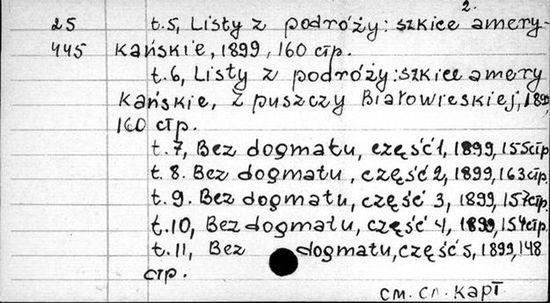 2.
25 t.5, Listy z podróży: szkice amery-
445 kańskie, 1899, 160 стр.
t.6, Listy z podróży: szkice amery
kańskie, z puszczy Białowieskiej, 189
160 стр.
t.7, Bez dogmatu, część 1, 1899, 155 стр
t.8. Bez dogmatu, część 2, 1899, 163 стр
t.9. Bez dogmatu, część 3, 1899, 157 стр
t.10, Bez dogmatu, część 4, 1899, 154 стр
t.11, Bez dogmatu, część 5, 1899, 148
стр.
см. сл. карт